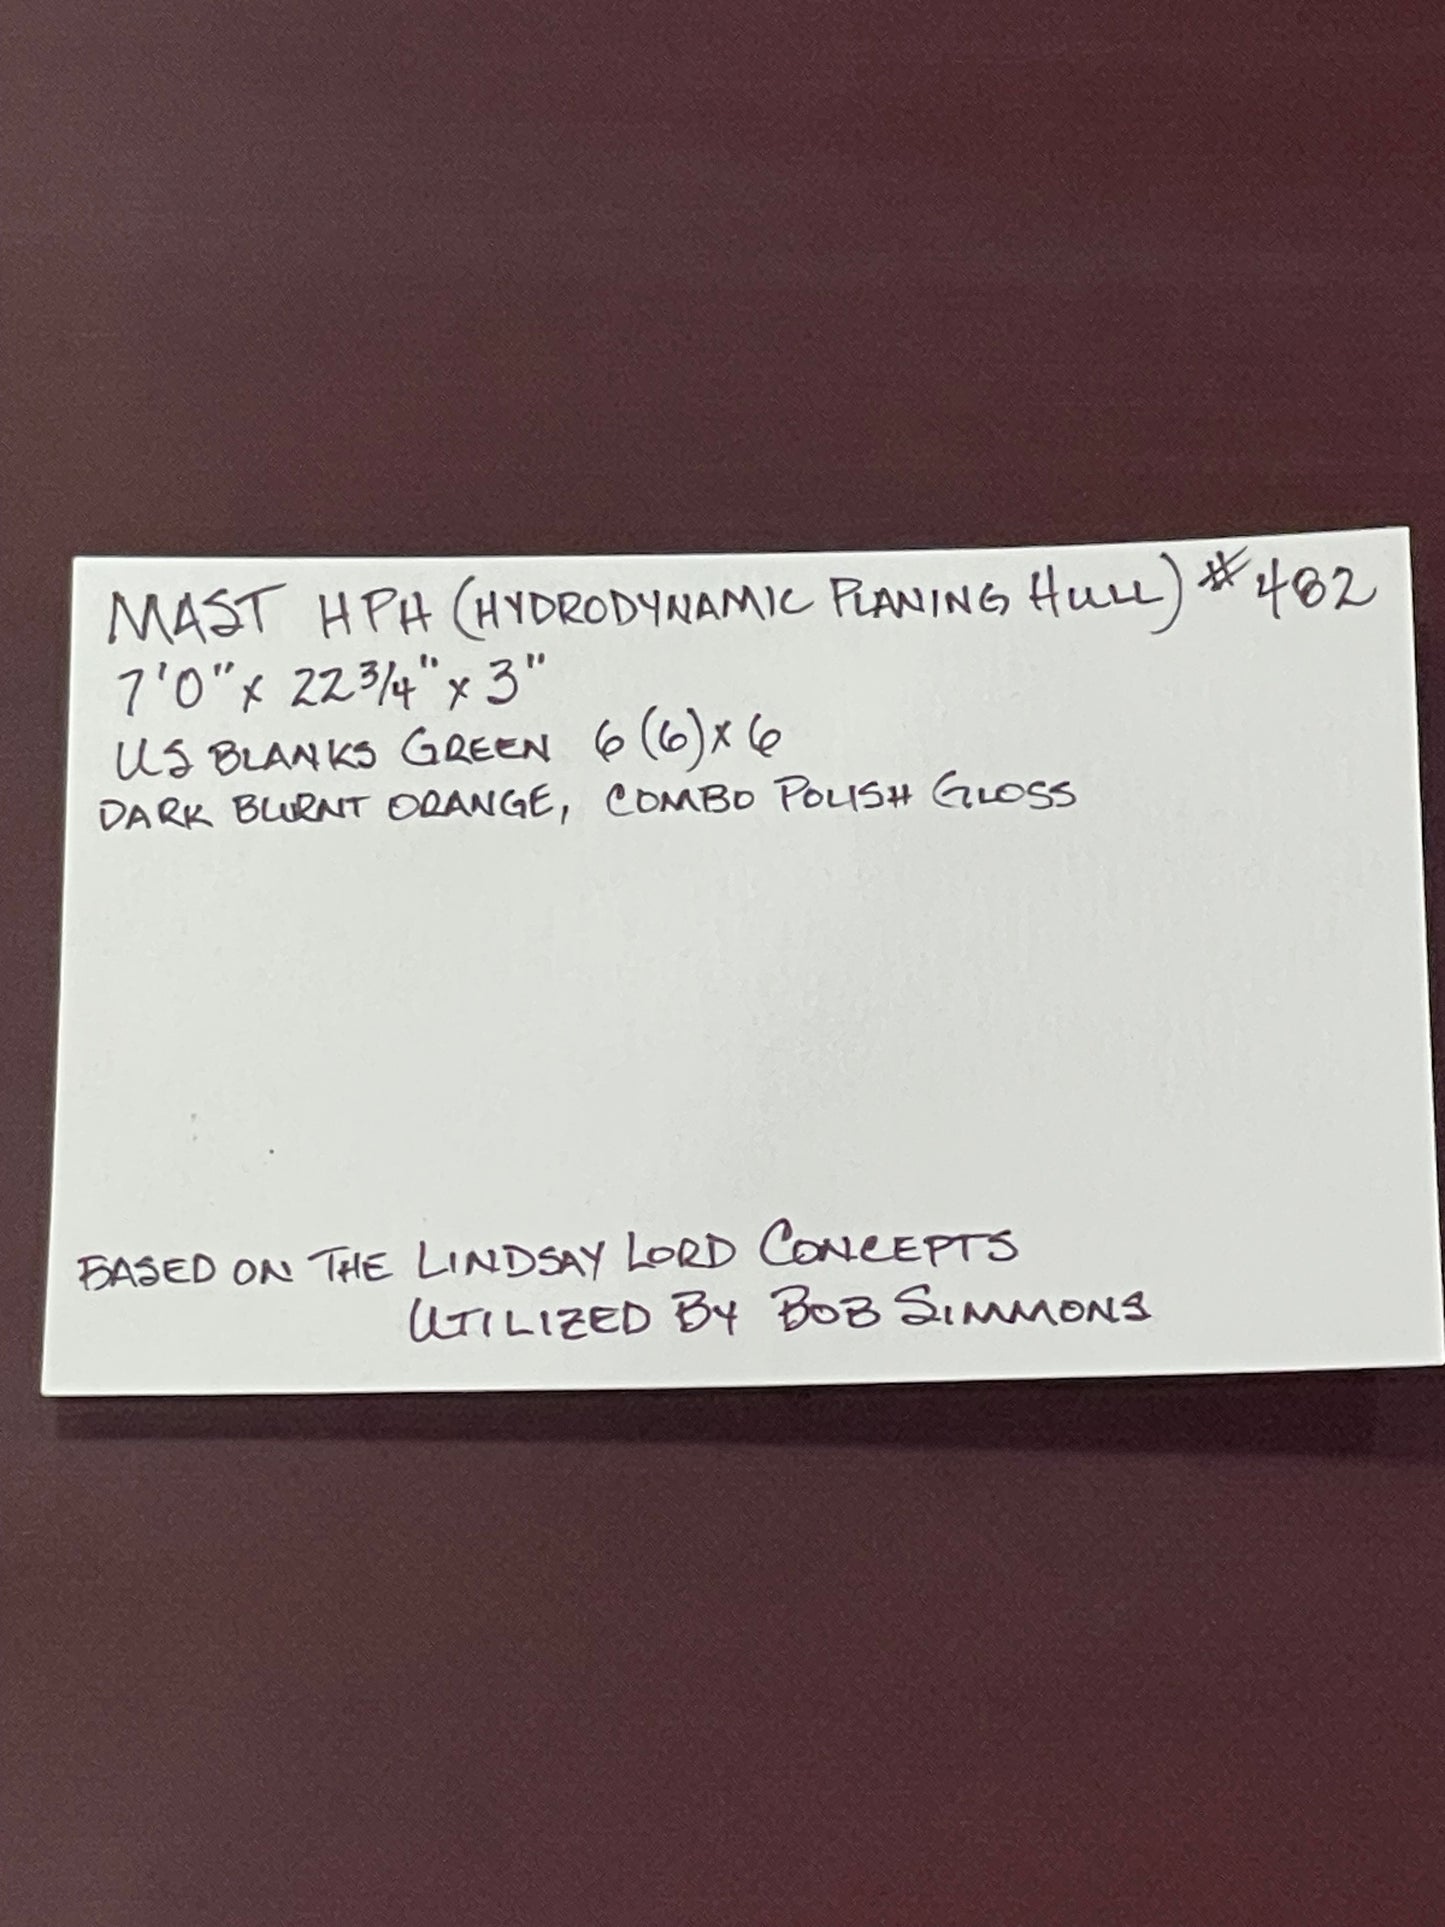 MAST HPH (HYDRODYNAMIC PLANING HULL) #482
7'0" x 22 3/4" x 3"
US BLANKS GREEN 6(6)x6
DARK BURNT ORANGE, COMBO POLISH GLOSS
BASED ON THE LINDSAY LORD CONCEPTS
UTILIZED BY BOB SIMMONS